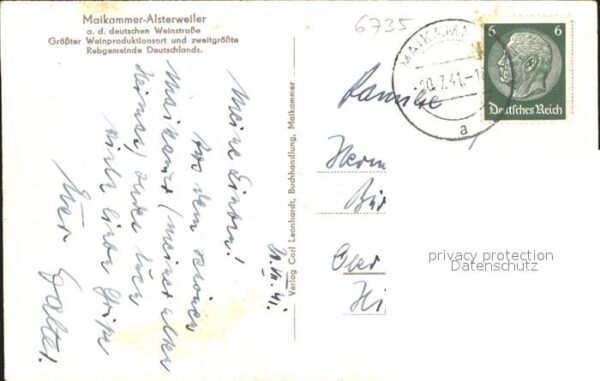 Maikammer-Alsterweiler
a. d. deutschen Weinstraße
Größter Weinproduktionsort und zweitgrößte
Rebgemeinde Deutschlands.
Meine Lieben!
Aus dem schönen
Maikammer (meiner alten
Heimat) sendet Euch
viele liebe Grüße
Euer Walter.
20.VII.41.
Verlag Carl Leonhardt, Buchhandlung, Maikammer
6735
MAIKAM
20.7.41.-1
a
6 6
Deutsches Reich
Familie
Herm
Ober
Hi
privacy protection
Datenschutz